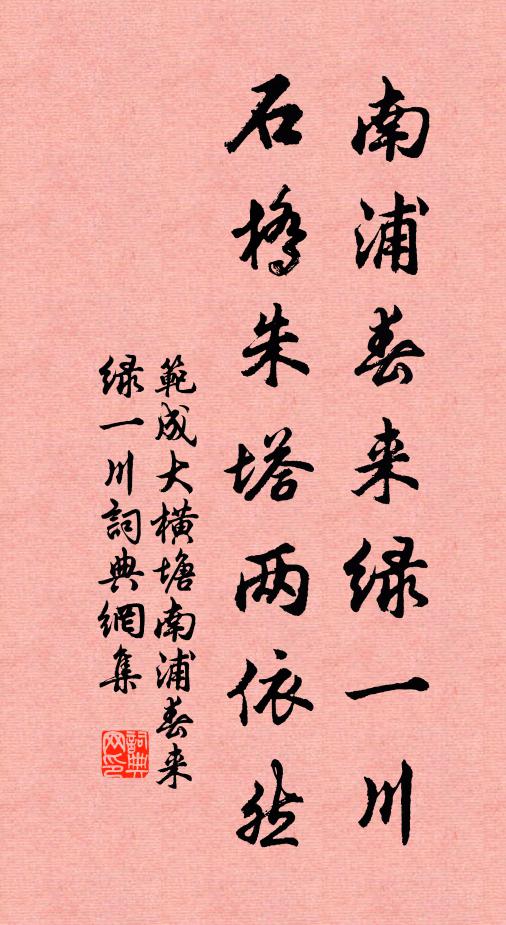 南浦春来绿一川
石橋朱塔两依然
範成大横塘南浦春来
绿一川詞典網集
詞典
网印